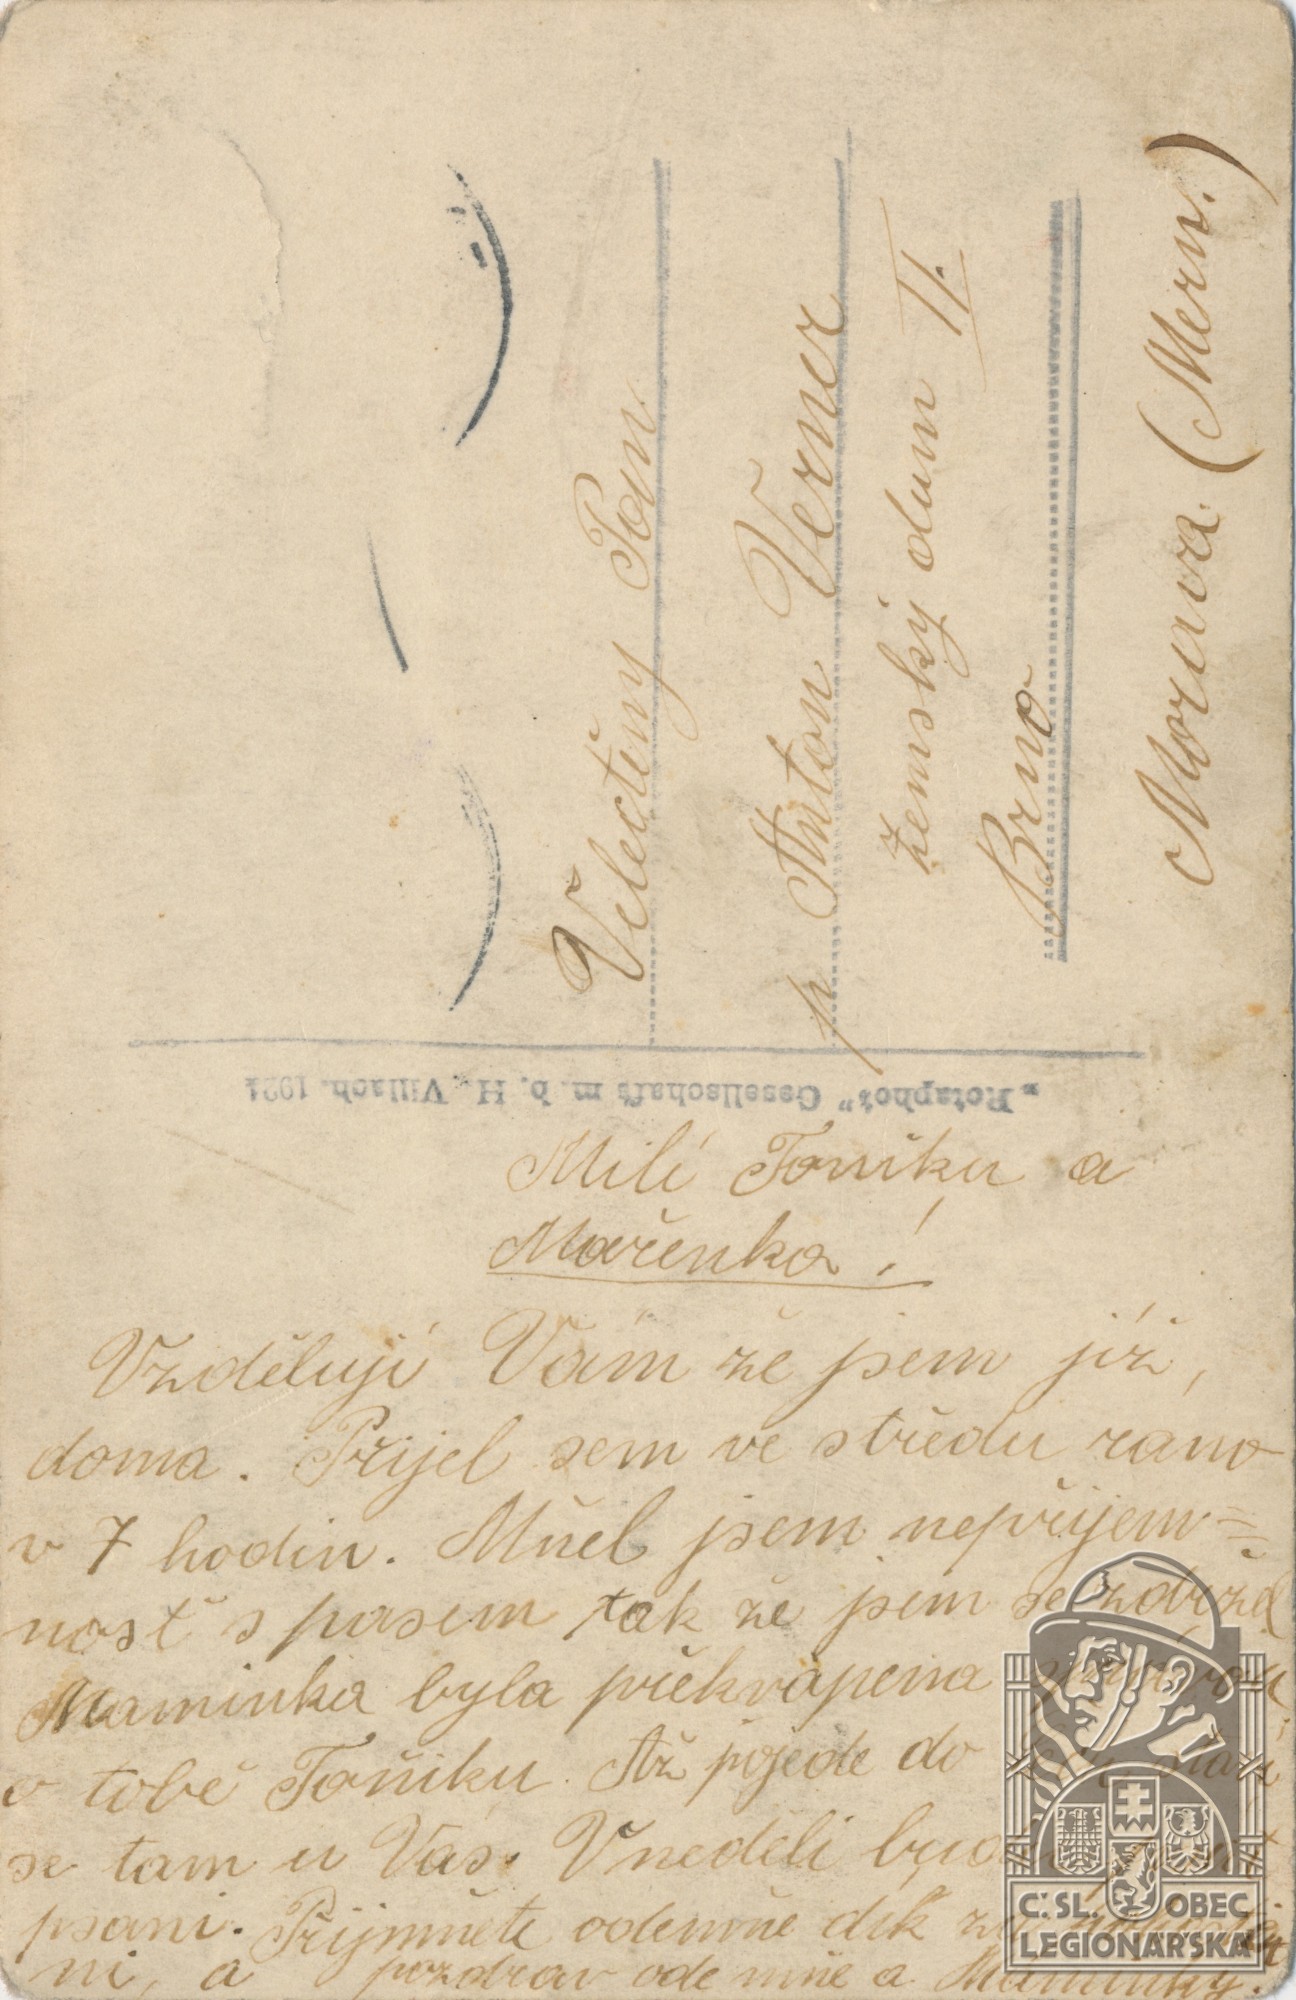 Velectěný Pan
p Anton Verner
zemský dum II.
Brno
Morava (Mern.)
„Rotophot" Gesellschaft m. b. H. Villach. 1921
Milí Toničku a
Mařenko!
Vzdělují Vám že jsem již,
doma. Přijel sem ve středu rano
v 7 hodin. Mněl jsem nepřijem=
nosť s pasem tak že jsem se zdržel
Maminka byla překvapena
o tobě Toničku. Až pojede do
se tam u Vás. V neděli budu
psani. Přijmněte odemně dík za
ní, a pozdrav ode mně a Maminky.
Č: SL. OBEC
LEGIONÁŘSKÁ